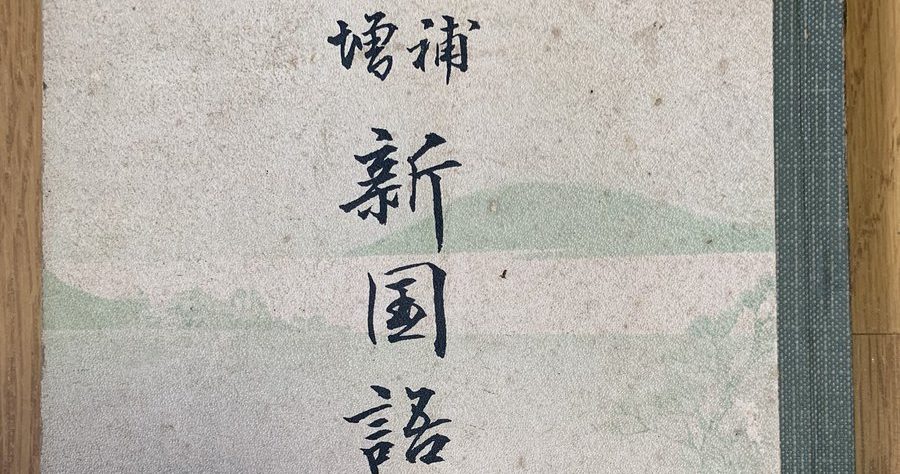 増補
新国語